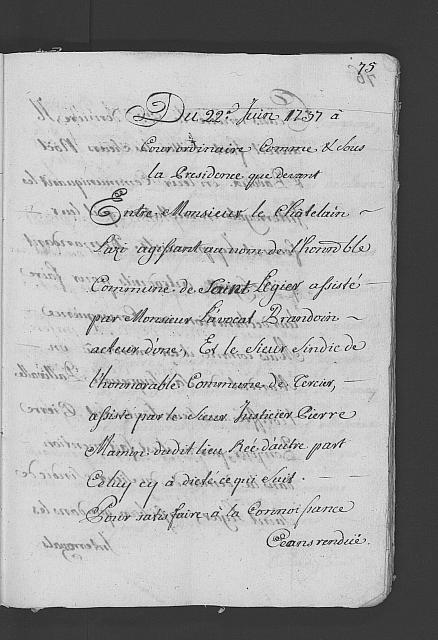 75
Du 22.e Juin 1737 à
Cour ordinaire Comme & sous
la Presidence que devant
Entre Monsieur le Chatelain
agissant au nom de l'honorable
Commune de Saint Légier assisté
par Monsieur L'avocat Brandoin
acteur d'une Et le sieur Sindic de
l'honnorable Commune de Tercier,
assiste par le sieur Justicier Pierre
Mamin dudit lieu Rée d'autre part
Celuy cy à dicté ce qui suit.
Pour satisfaire à la Connoissance
Ceans rendüe.